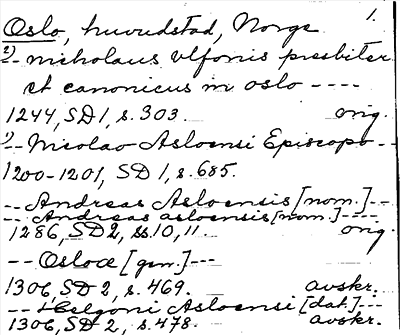 Oslo, huvudstad, Norge 1.
2) -- nicholaus vlfonis presbiter
et canonicus in oslo ----
1244, SD 1, s. 303. orig.
1) -- Nicolao Asloensi Episcopo --
1200-1201, SD 1, s. 685.
-- Andreas Asloensi [nom.] --
-- Andreas asloensis [nom.] ----
1286, SD 2, ss. 10, 11. orig.
-- Osloæ [gen.] ---
1306, SD 2, s. 469. avskr.
-- Helgoni Asloensi [dat.] ---
1306, SD 2, s. 478. avskr.